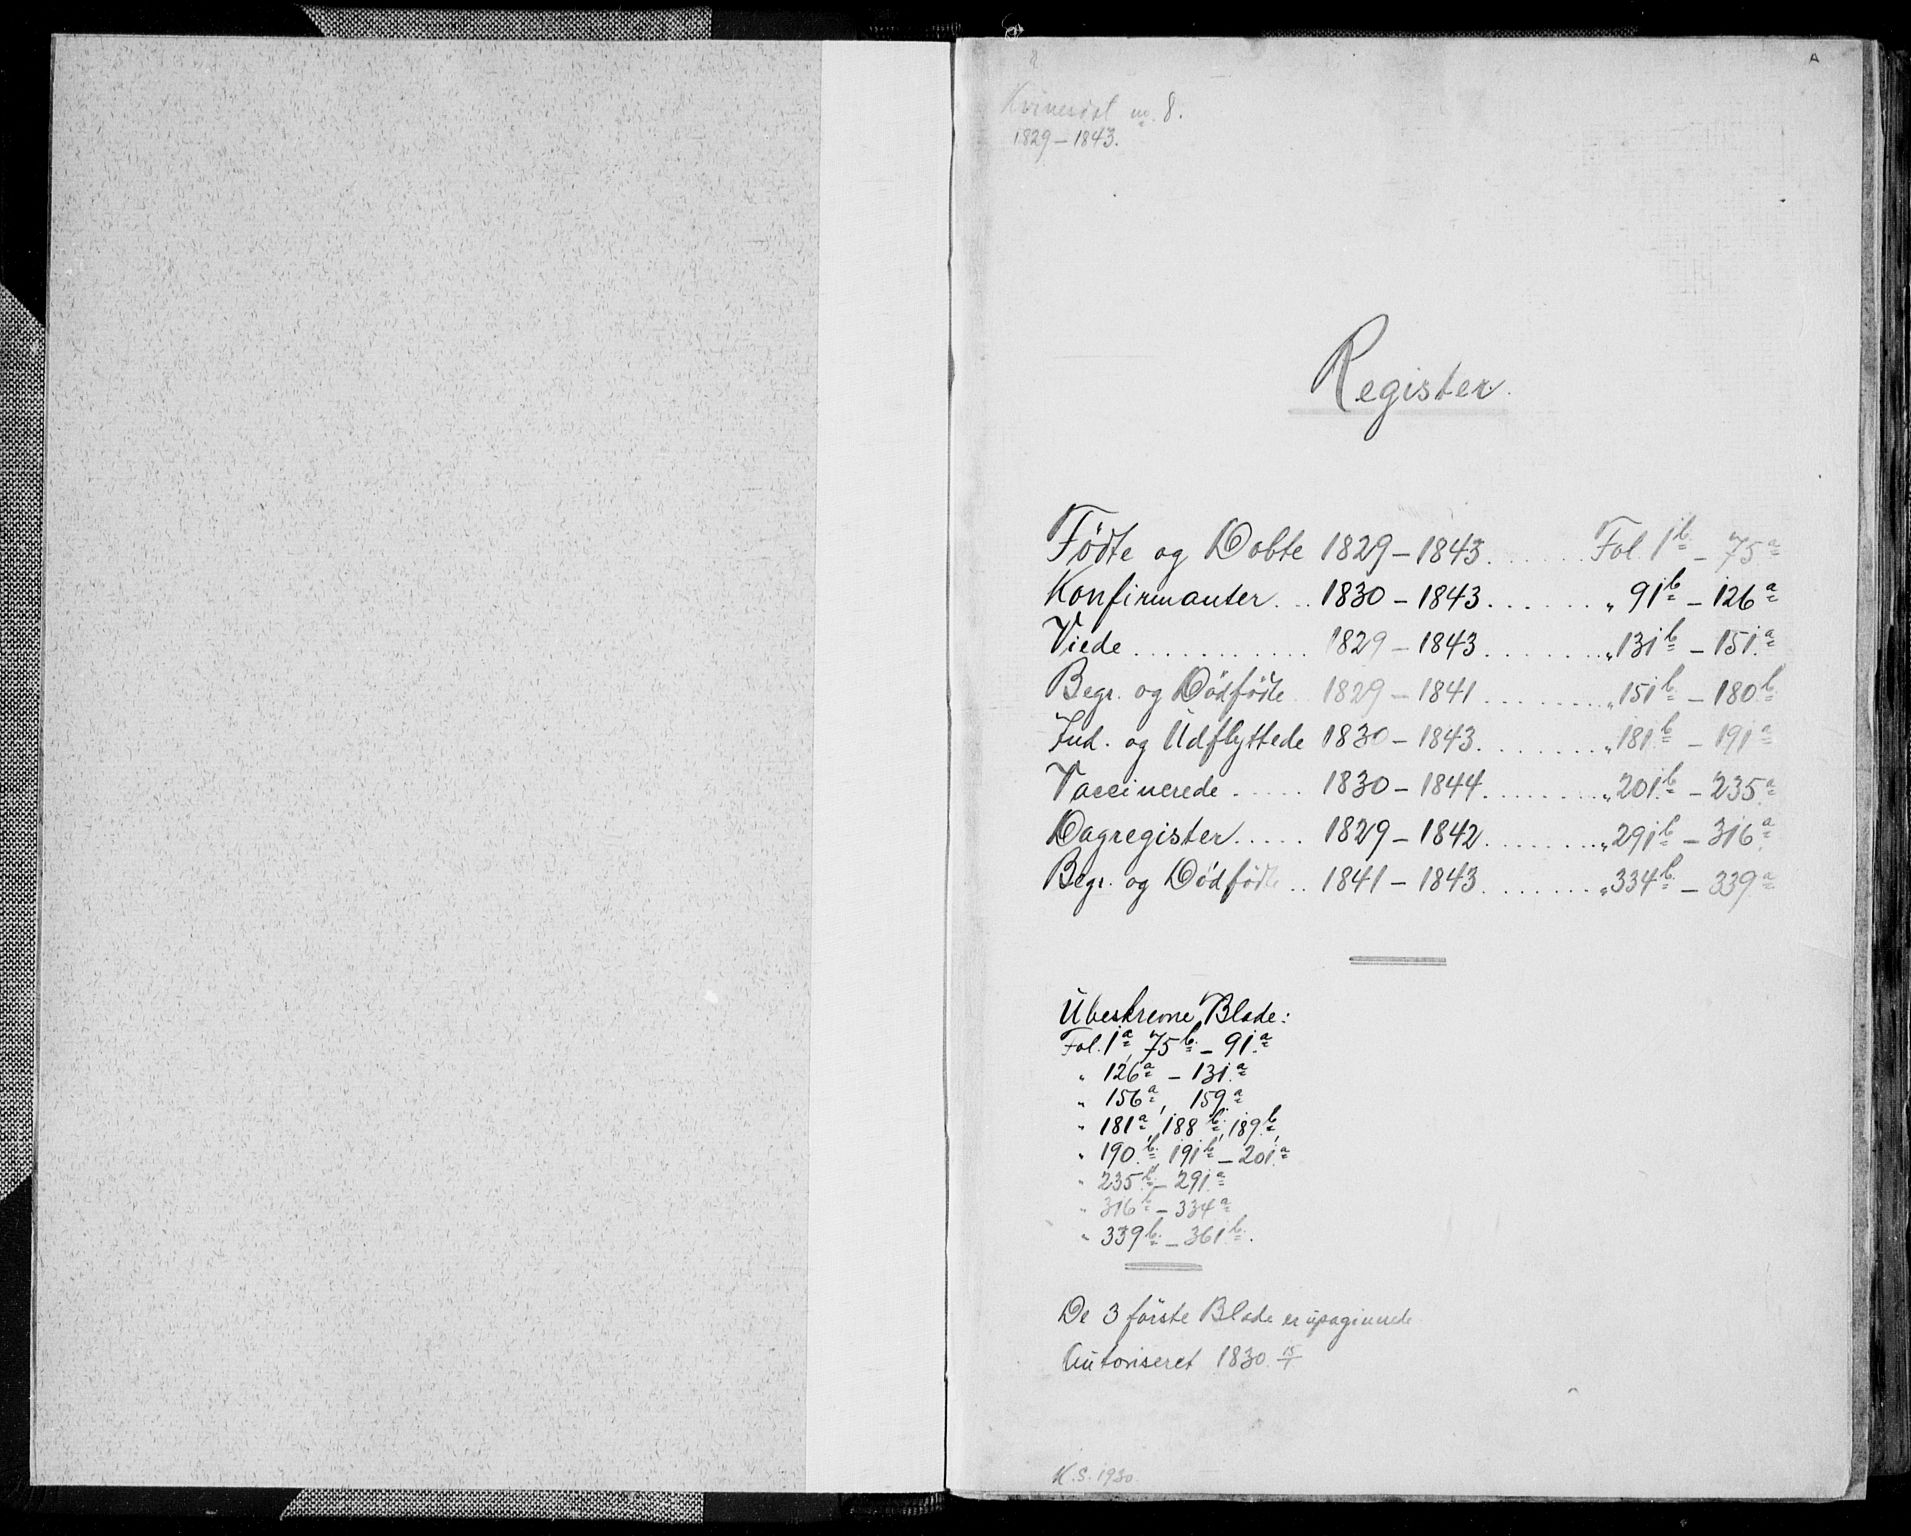 Kvinesdal nr. 8.
1829 – 1843.
A
Register.
Födte og Döbte 1829 – 1843. . . . . . Fol. 1b – 75a
Konfirmanter. . . 1830 – 1843. . . . . . „ 91b – 126a
Viede . . . . . . . . . . . 1829 – 1843. . . . . . . „ 131b – 151a
Begr. og Dödfödte 1829 – 1841 . . . . . . . „ 151b – 180b
Ind. og Udflyttede 1830 – 1843. . . . . . . „ 181b – 191a
Vaccinerede . . . . . 1830 – 1844. . . . . . . „ 201b – 235a
Dagregister . . . . . 1829 – 1842. . . . . . . „ 291b – 316a
Begr. og Dödfödte . . 1841 – 1843. . . . . . . „ 334b – 339a
Ubeskrevne Blade:
Fol. 1a, 75b – 91a
„ 126a – 131a
„ 156a, 159a
„ 181a, 188b, 189b,
„ 190b, 191b – 201a
„ 235b – 291a
„ 316b – 334a
„ 339b – 361b.
De 3 förste Blade er upaginerede
Autoriseret 1830 15/1
K.S. 1930.